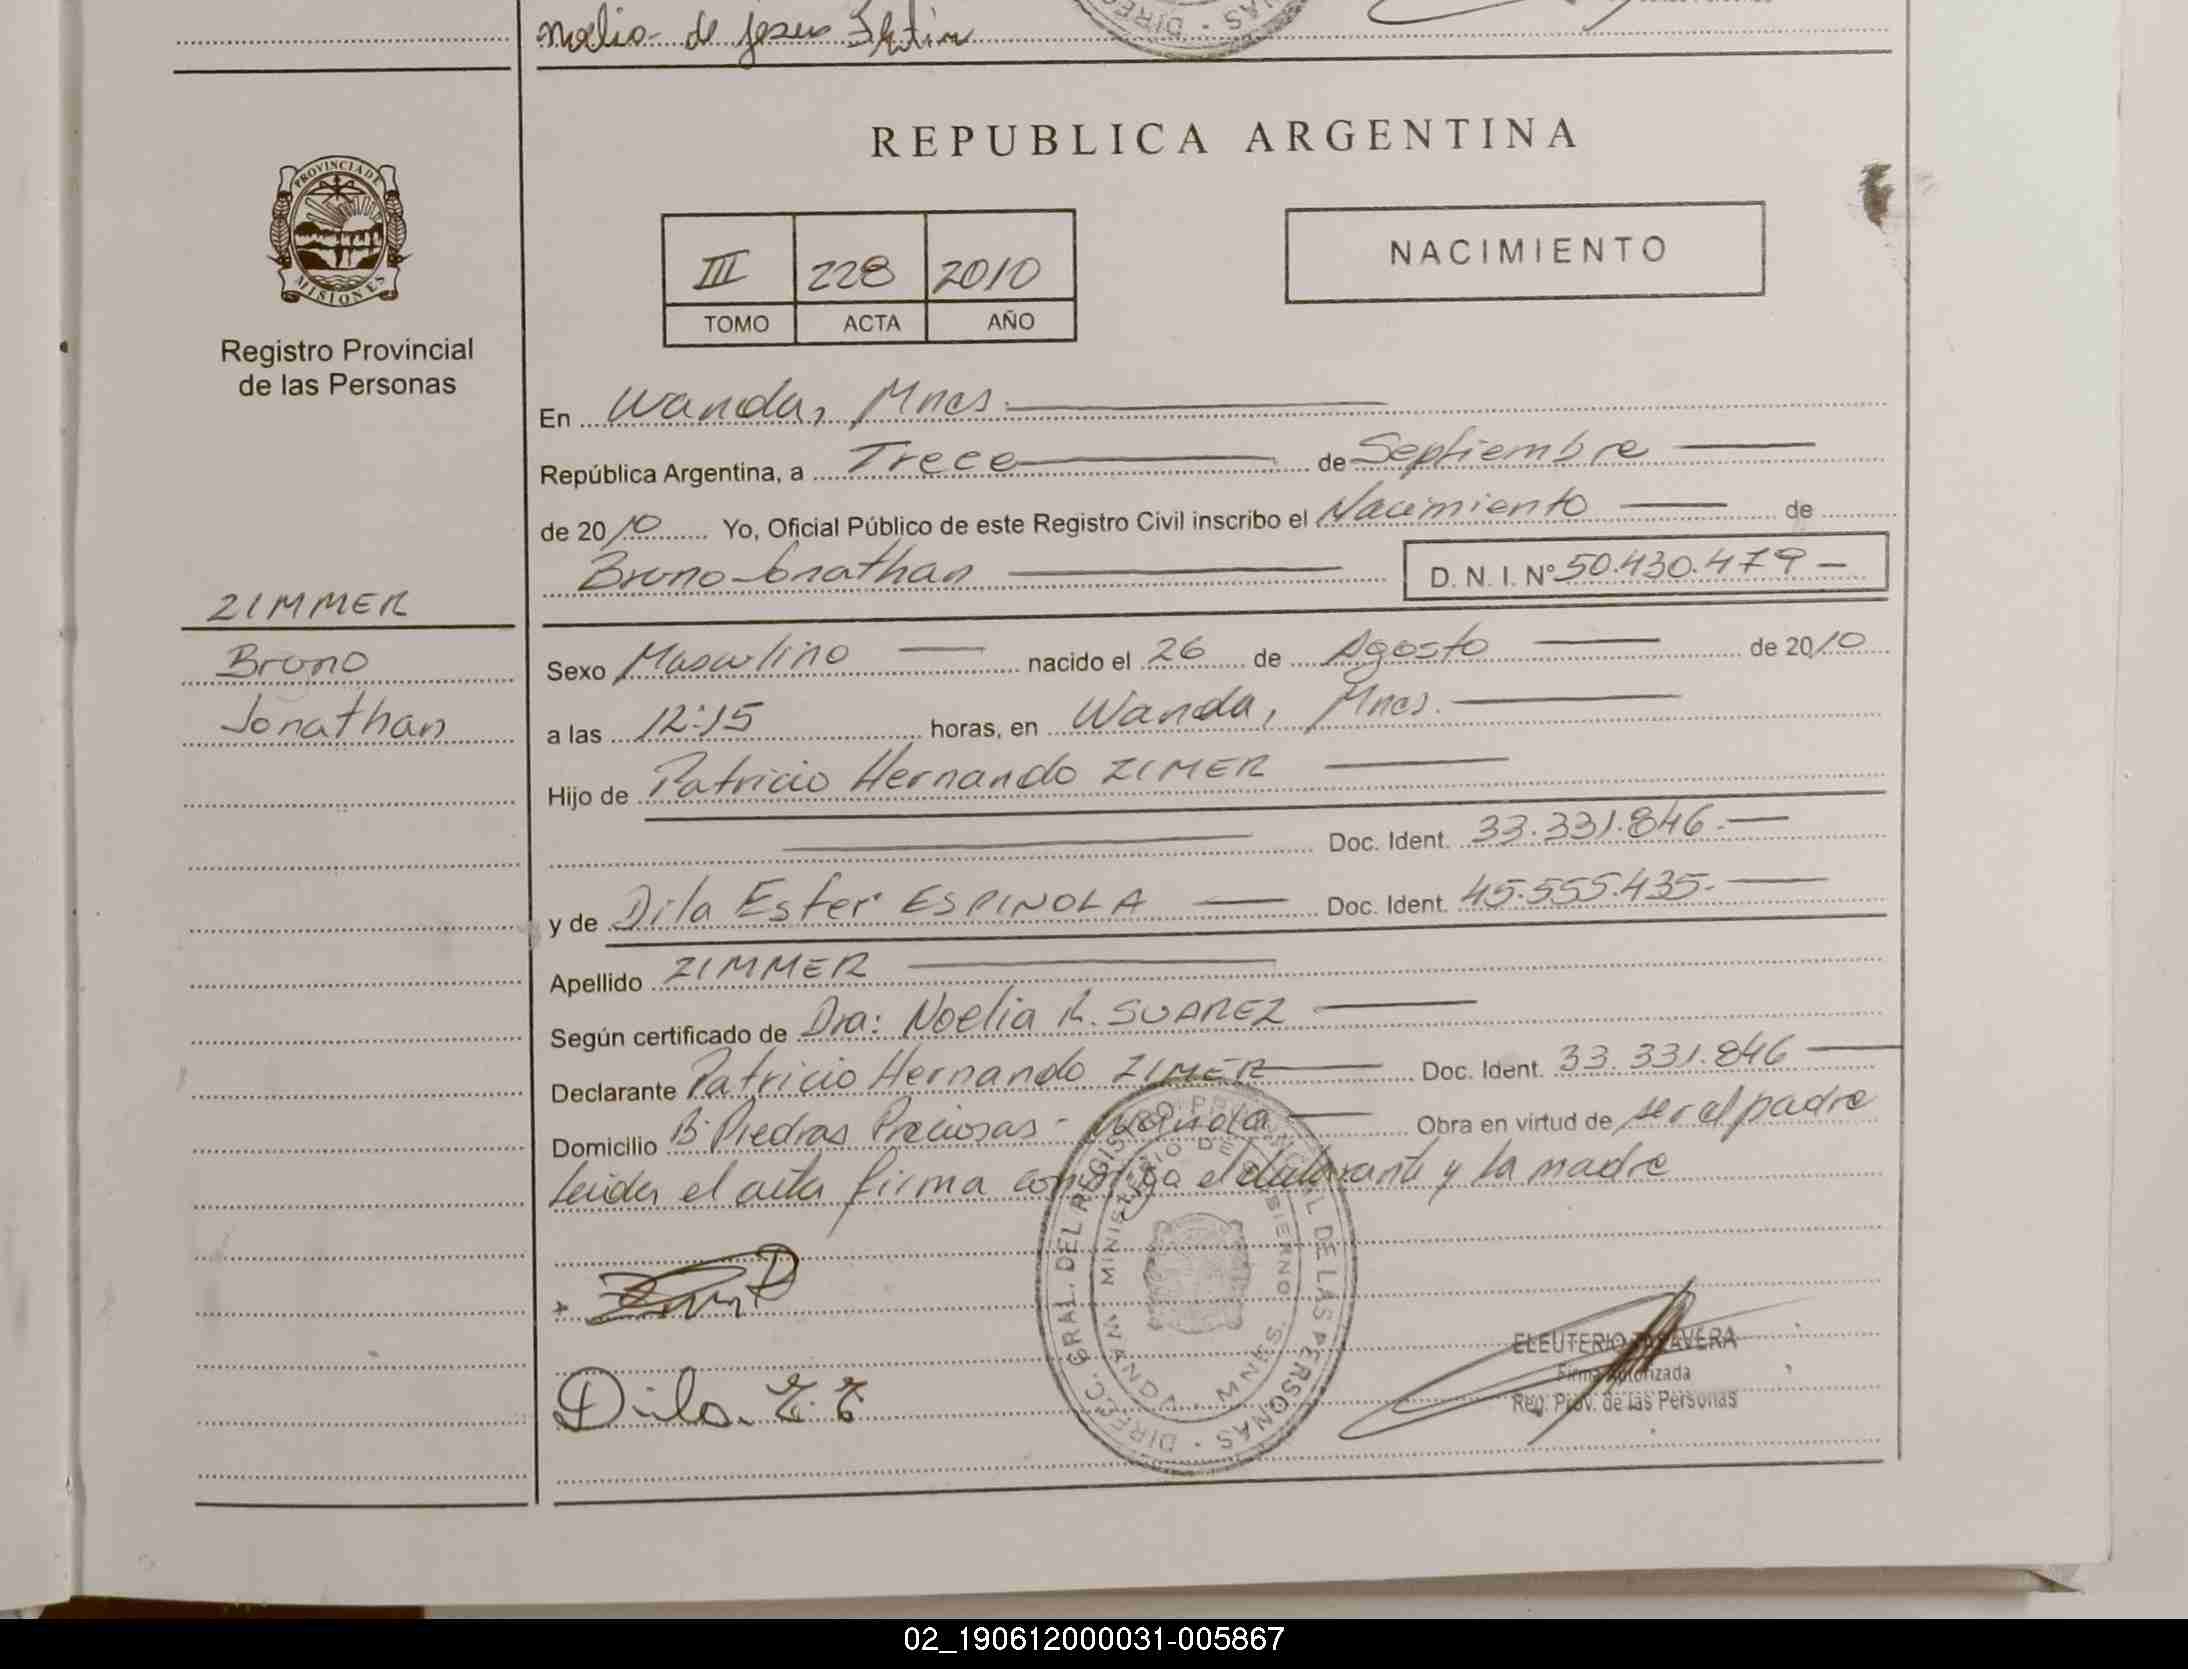 noelia de jesus
REPUBLICA ARGENTINA
PROVINCIA DE MISIONES
III 228 2010
TOMO ACTA AÑO
NACIMIENTO
Registro Provincial
de las Personas
En Wanda, Mnes.
República Argentina, a Trece de Septiembre
de 2010 Yo, Oficial Público de este Registro Civil inscribo el Nacimiento de
Bruno Jonathan D. N. I. Nº 50.430.479
ZIMMER
Bruno
Jonathan
Sexo Masculino nacido el 26 de Agosto de 2010
a las 12:15 horas, en Wanda, Mnes.
Hijo de Patricio Hernando ZIMER
Doc. Ident. 33.331.846.
y de Dila Ester ESPINOLA Doc. Ident. 45.555.435.
Apellido ZIMMER
Según certificado de Dra: Noelia R. SUAREZ
Declarante Patricio Hernando ZIMER Doc. Ident. 33.331.846
Domicilio B. Piedras Preciosas - Wanda Obra en virtud de ser el padre
Leida el acta firma conmigo el declarante y la madre
DIREC. GRAL. DEL REGISTRO PROVINCIAL DE LAS PERSONAS
MINISTERIO DE GOBIERNO
WANDA - MNES.
Dila. E. E
ELEUTERIO TALAVERA
Firma Autorizada
Reg. Prov. de las Personas
02_190612000031-005867